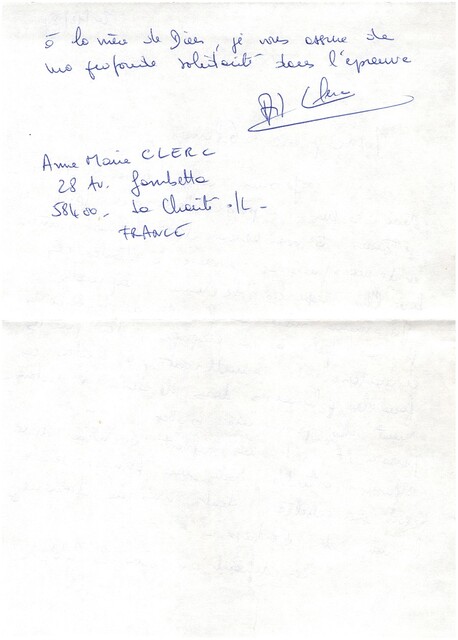 à la mère de Dieu, je vous assure de
ma profonde solidarité dans l'épreuve
AM Clerc
Anne Marie CLERC
28 Av. Gambetta
58400 - La Charité s/L -
FRANCE